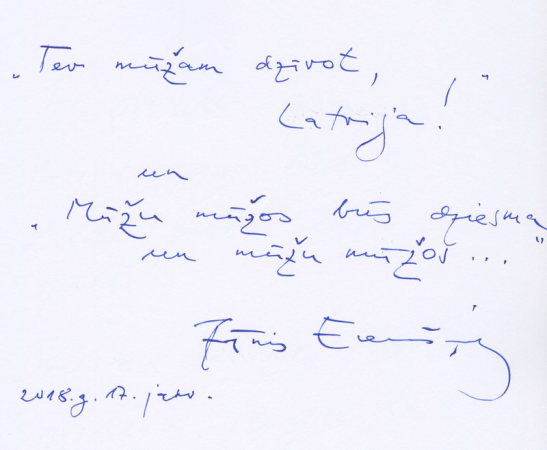 „Tev mūžam dzīvot,
Latvija!”
un
„Mūžu mūžos būs dziesma
un mūžu mūžos..."
Jānis Erenštreits
2018.g. 17. janv.